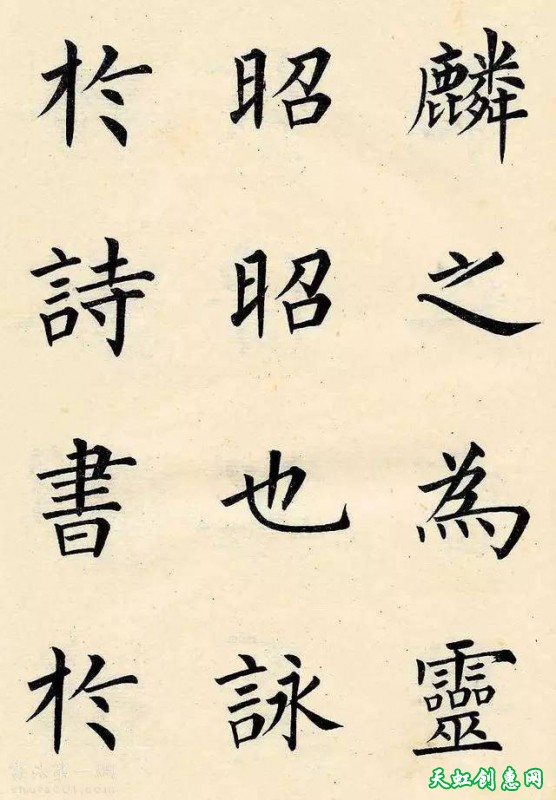 麟之為靈
昭昭也詠
於詩書於
天虹创惠网